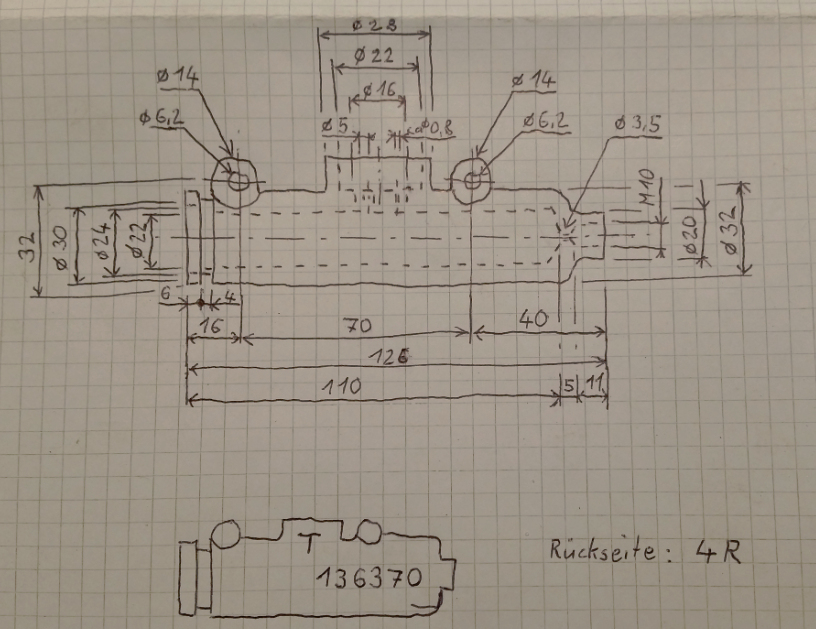 ø28
ø22
ø16
ø5 ø0,8
ø14
ø6,2
ø14
ø6,2
ø3,5
32
ø30
ø24
ø22
M10
ø20
ø32
6 4
16 70 40
126
110 5 11
T
136370
Rückseite: 4R